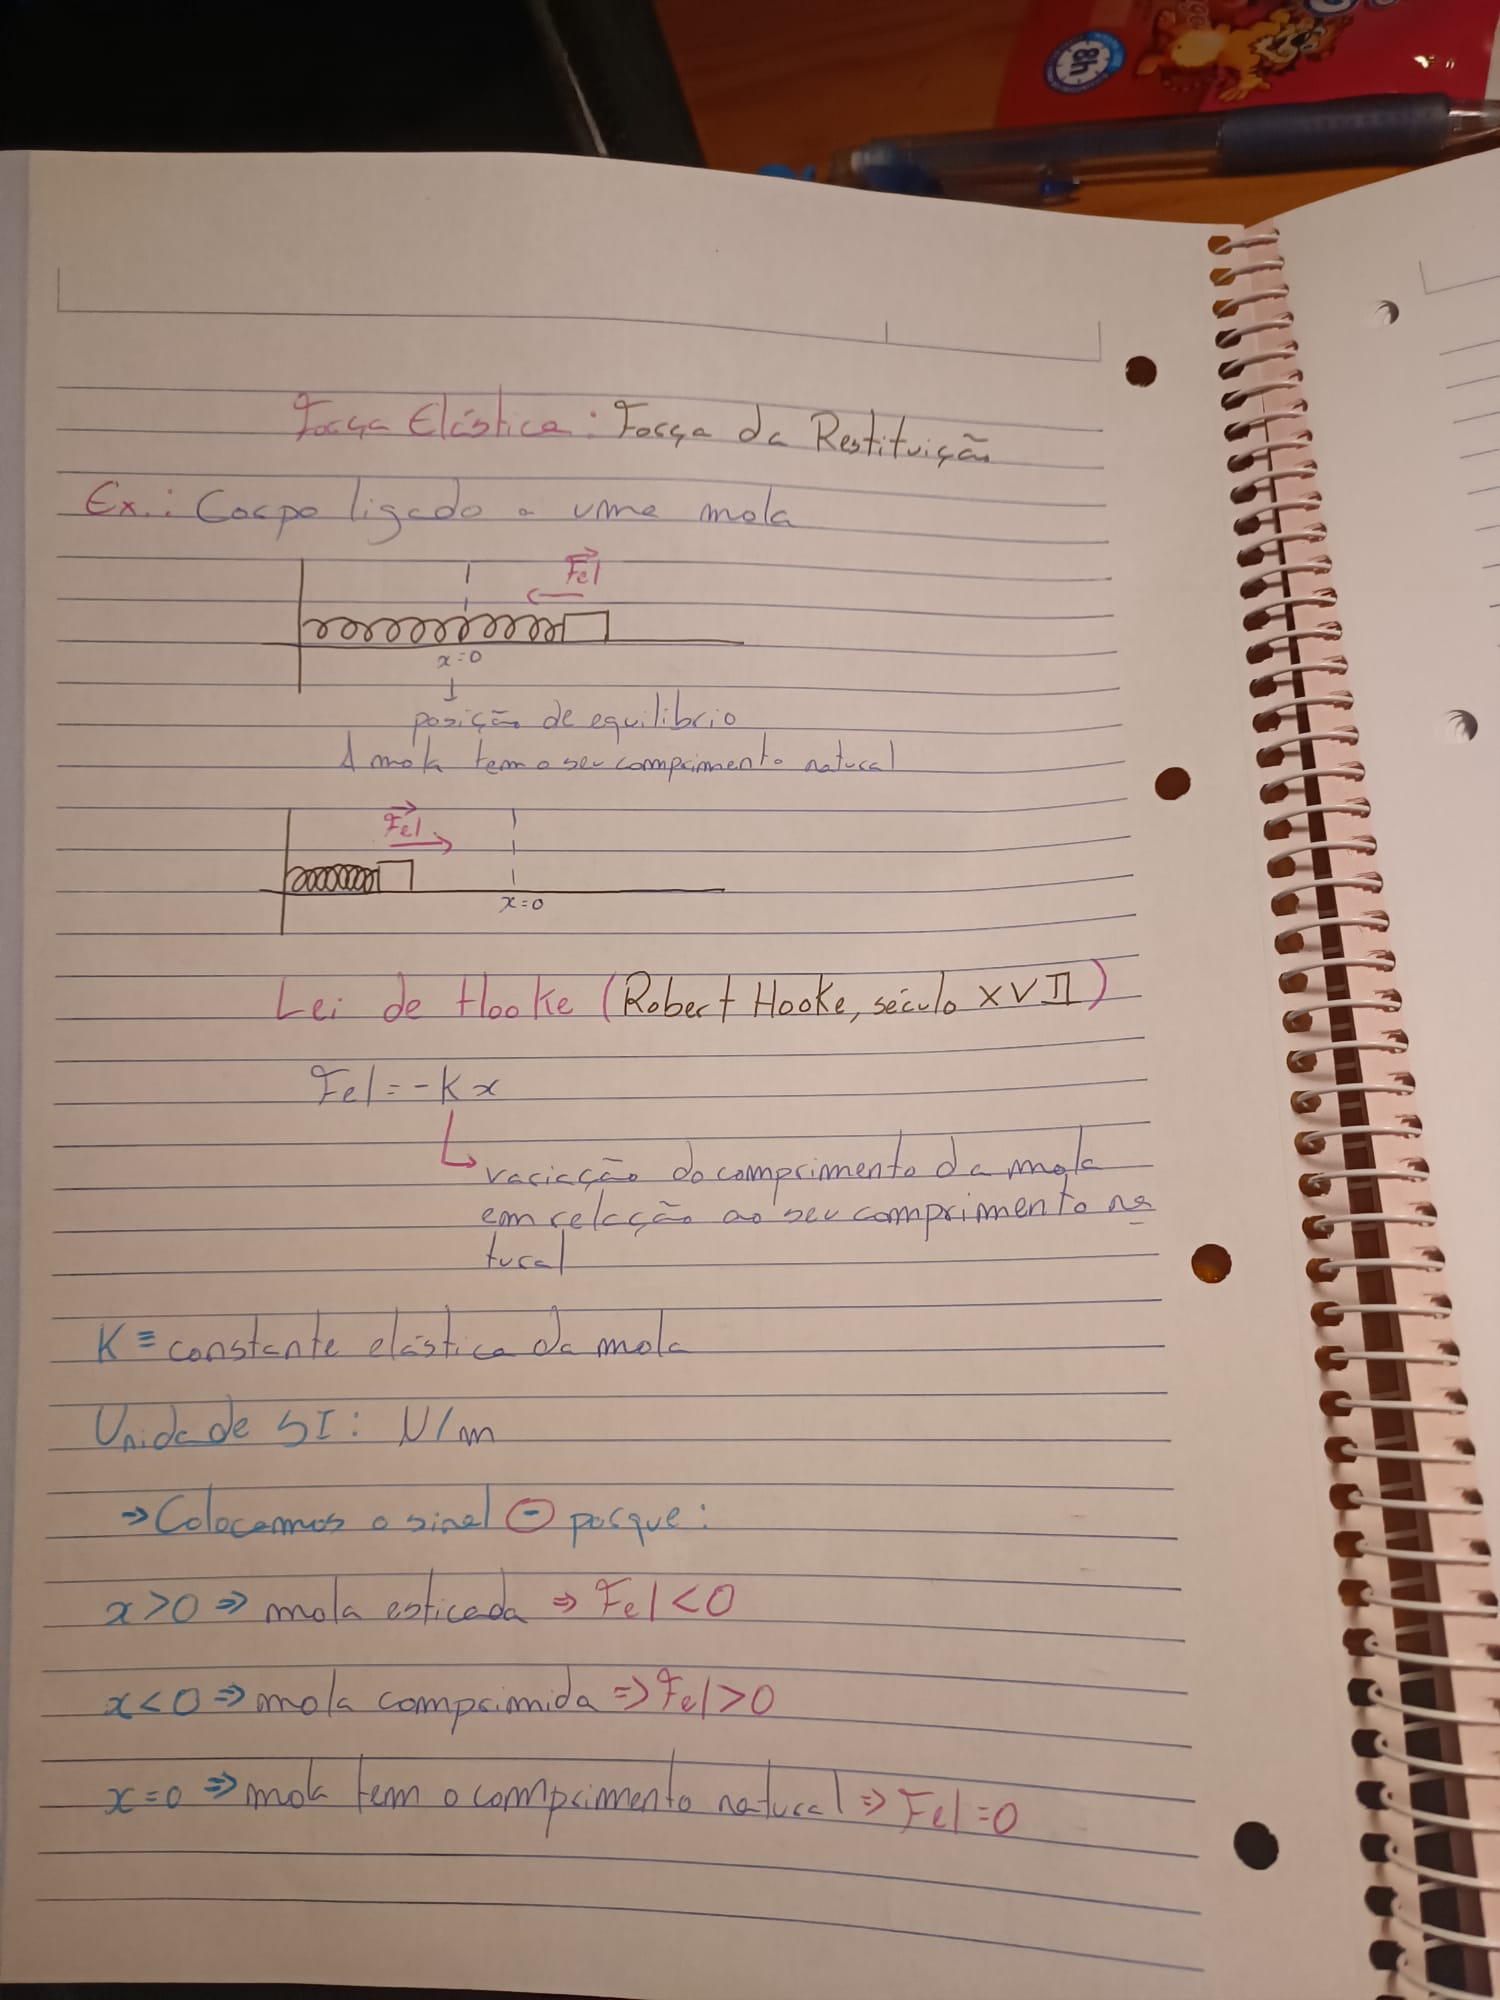 8h
Força Elástica: Força da Restituição
Ex.: Corpo ligado a uma mola
Fel
x=0
posição de equilibrio
A mola tem o seu comprimento natural
Fel
x=0
Lei de Hooke (Robert Hooke, século XVII)
Fel=-Kx
variação do comprimento da mola
em relação ao seu comprimento na
tural
K≡constante elástica da mola
Unidade SI: N/m
⇒Colocamos o sinal ⊖ porque:
x>0⇒mola esticada ⇒ Fel<0
x<0⇒mola comprimida ⇒Fel>0
x=0 ⇒mola tem o comprimento natural ⇒ Fel=0